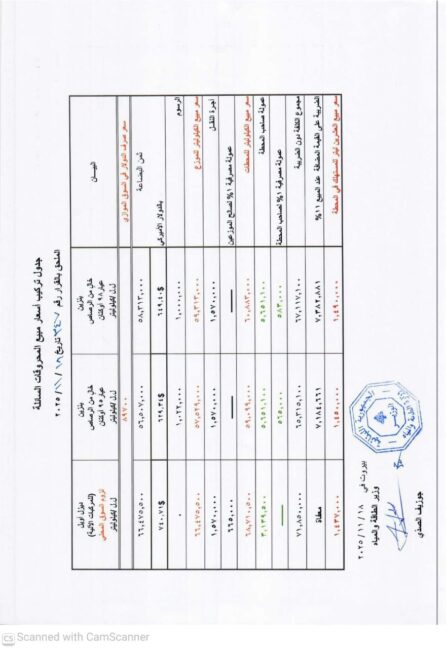 جدول تركيب أسعار مبيع المحروقات السائلة
الملحق بالقرار رقم تاريخ ٢٠٢٥/١١/١٨
البيـــان
بنزين خال من الرصاص عيار ٩٨ أوكتان ل.ل/كيلوليتر
بنزين خال من الرصاص عيار ٩٥ أوكتان ل.ل/كيلوليتر
ديزل أويل (للمركبات الآلية) لزوم السوق المحلي ل.ل/كيلوليتر
سعر صرف الدولار في السوق الموازي ٨٩٧٠٠
ثمن البضاعة ٥٨,٣١٣,٠٠٠ ٥٦,٥٠٧,٠٠٠ ٦٦,٤٧٥,٥٠٠
بالدولار الأميركي ٦٤٩.٤٠$ ٦٢٩.٣٤$ ٧٤٠.٧١$
الرسوم ١,٠٠٠,٠٠٠ ١,٠٢٢,٠٠٠ ٠
سعر مبيع الكيلوليتر للموزع ٥٩,٣١٣,٠٠٠ ٥٧,٥٢٩,٠٠٠ ٦٦,٤٧٥,٥٠٠
أجرة النقل ١,٥٧٠,٠٠٠ ١,٥٧٠,٠٠٠ ١,٥٧٠,٠٠٠
عمولة مصرفية ١% لصالح الموزعين ٦٦٥,٠٠٠
سعر مبيع الكيلوليتر للمحطات ٦٠,٨٨٣,٠٠٠ ٥٩,٠٩٩,٠٠٠ ٦٨,٧١٠,٥٠٠
عمولة صاحب المحطة ٥,٦٥١,١٠٠ ٥,٦٥١,١٠٠ ٣,١٣٩,٥٠٠
عمولة مصرفية ١% لصاحب المحطة ٥٨٣,٠٠٠ ٥٦٥,٠٠٠
مجموع الكلفة دون الضريبة ٦٧,١١٧,١٠٠ ٦٥,٣١٥,١٠٠ ٧١,٨٥٠,٠٠٠
الضريبة على القيمة المضافة عند المبيع ١١% ٧,٣٨٢,٨٨١ ٧,١٨٤,٦٦١ معفاة
سعر مبيع العشرين ليتر للمستهلك في المحطة ١,٤٩٠,٠٠٠ ١,٤٥٠,٠٠٠ ١,٤٣٧,٠٠٠
بيروت في ٢٠٢٥/١١/١٨
وزير الطاقة والمياه
جوزيف الصدي
CS Scanned with CamScanner